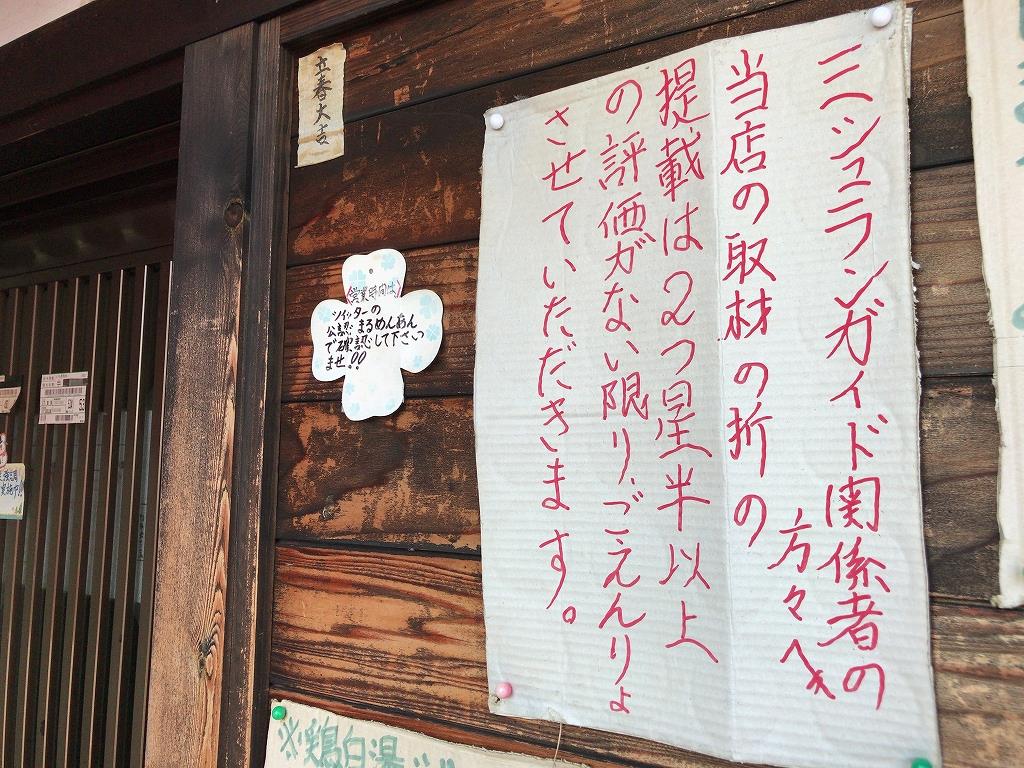 ミシュランガイド関係者の
方々へ
当店の取材の折の
提載は2つ星半以上
の評価がない限り、ごえんりょ
させていただきます。
立春大吉
営業時間は
ツイッターの
公認まるめんめん
で確認して下さい
ませ!!
※鶏白湯